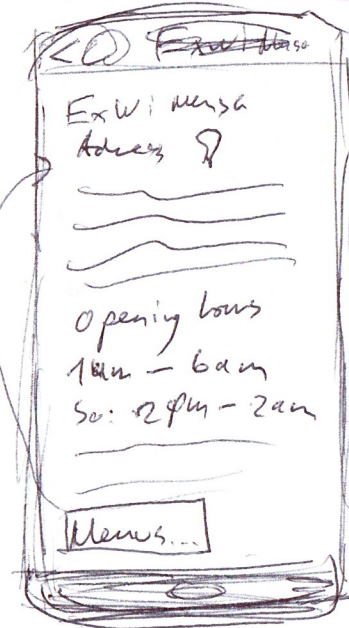 < ExWi Mensa
ExWi Mensa
Adress
Opening hours
– 6am
So: – 2am
Menus...